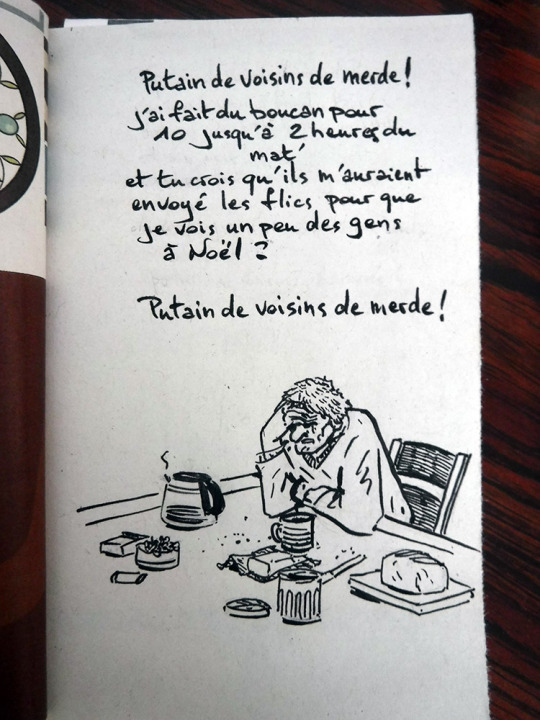 Putain de voisins de merde !
j'ai fait du boucan pour
10 jusqu'à 2 heures du
mat'
et tu crois qu'ils m'auraient
envoyé les flics pour que
je vois un peu des gens
à Noël ?
Putain de voisins de merde !